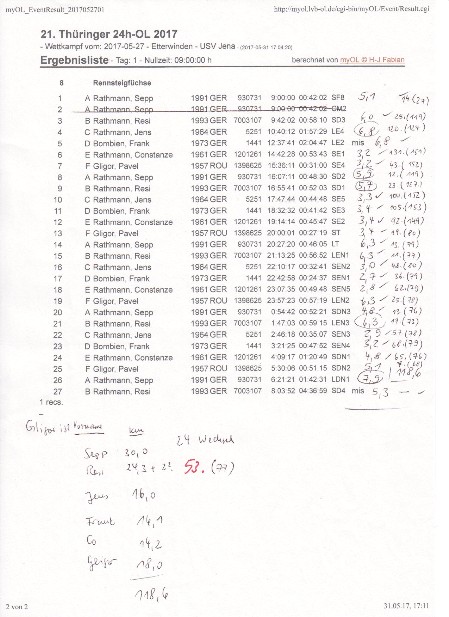 myOL_EventResult_2017052701 http://myol.lvb-ol.de/cgi-bin/myOL/Event/Result.cgi
21. Thüringer 24h-OL 2017
- Wettkampf vom: 2017-05-27 - Etterwinden - USV Jena - (2017-05-31 17:04:20)
Ergebnisliste - Tag: 1 - Nullzeit: 09:00:00 h berechnet von myOL © H-J Fabian
6 Rennsteigfüchse
1 A Rathmann, Sepp 1991 GER 930731 9:00:00 00:42:02 SF8 5,1
2 A Rathmann, Sepp 1991 GER 930731 9:00:00 00:42:02 DM2
3 B Rathmann, Resi 1993 GER 7003107 9:42:02 00:58:10 SD3 6,0
4 C Rathmann, Jens 1964 GER 5251 10:40:12 01:57:29 LE4 6,8
5 D Bombien, Frank 1973 GER 1441 12:37:41 02:04:47 LE2 mis 6,8
6 E Rathmann, Constanze 1961 GER 1201261 14:42:28 00:53:43 SE1 3,2
7 F Gligor, Pavel 1957 ROU 1398625 15:36:11 00:31:00 SE4 3,2
8 A Rathmann, Sepp 1991 GER 930731 16:07:11 00:48:30 SD2 5,9
9 B Rathmann, Resi 1993 GER 7003107 16:55:41 00:52:03 SD1 5,7
10 C Rathmann, Jens 1964 GER 5251 17:47:44 00:44:48 SE5 3,3
11 D Bombien, Frank 1973 GER 1441 18:32:32 00:41:42 SE3 3,4
12 E Rathmann, Constanze 1961 GER 1201261 19:14:14 00:45:47 SE2 3,4
13 F Gligor, Pavel 1957 ROU 1398625 20:00:01 00:27:19 ST 3,4
14 A Rathmann, Sepp 1991 GER 930731 20:27:20 00:46:05 LT 6,3
15 B Rathmann, Resi 1993 GER 7003107 21:13:25 00:56:52 LEN1 6,3
16 C Rathmann, Jens 1964 GER 5251 22:10:17 00:32:41 SEN2 3,0
17 D Bombien, Frank 1973 GER 1441 22:42:58 00:24:37 SEN1 2,7
18 E Rathmann, Constanze 1961 GER 1201261 23:07:35 00:49:48 SEN5 2,8
19 F Gligor, Pavel 1957 ROU 1398625 23:57:23 00:57:19 LEN2 6,3
20 A Rathmann, Sepp 1991 GER 930731 0:54:42 00:52:21 SDN3 4,8
21 B Rathmann, Resi 1993 GER 7003107 1:47:03 00:59:15 LEN3 6,3
22 C Rathmann, Jens 1964 GER 5251 2:46:18 00:35:07 SEN3 2,9
23 D Bombien, Frank 1973 GER 1441 3:21:25 00:47:52 SEN4 3,2
24 E Rathmann, Constanze 1961 GER 1201261 4:09:17 01:20:49 SDN1 4,8
25 F Gligor, Pavel 1957 ROU 1398625 5:30:06 00:51:15 SDN2 5,1
26 A Rathmann, Sepp 1991 GER 930731 6:21:21 01:42:31 LDN1 7,9 118,6
27 B Rathmann, Resi 1993 GER 7003107 8:03:52 04:36:59 SD4 mis 5,3
1 recs.
Gligor ist
km
24 Wechsel
Sepp 30,0
Resi 24,3 53. (77)
Jens 16,0
Frank 14,1
Co 14,2
Gligor 18,0
118,6
2 von 2 31.05.17, 17:11